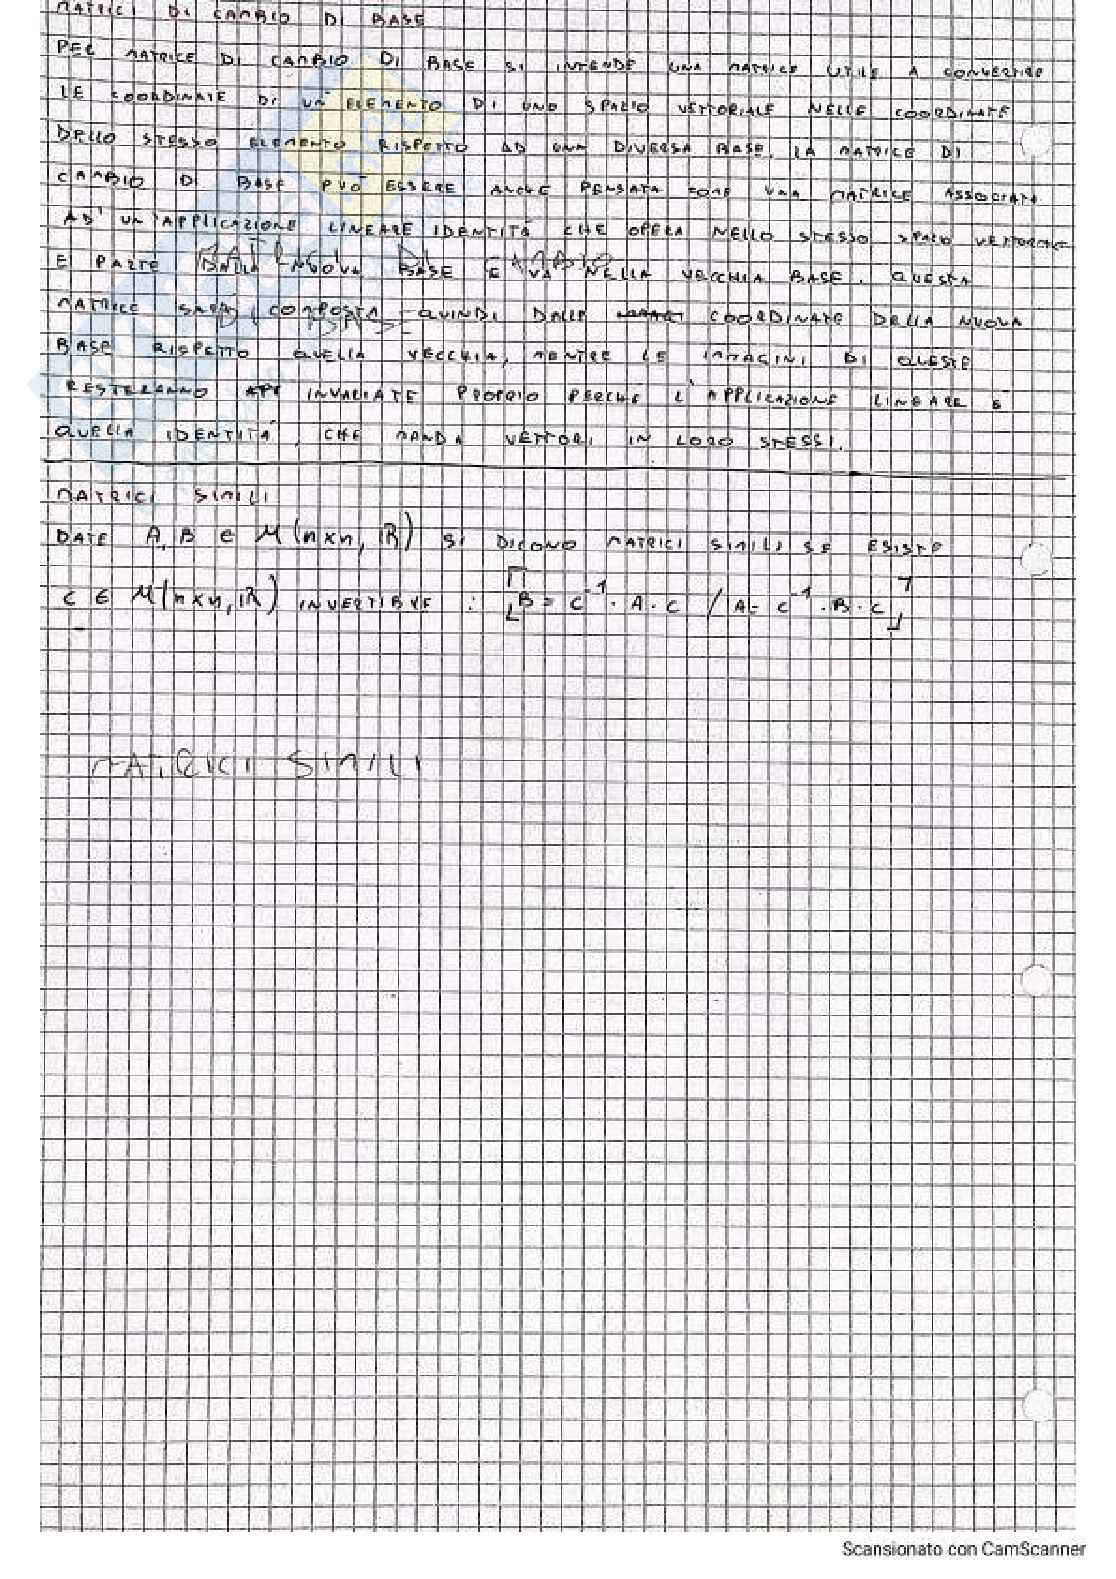 MATRICI DI CAMBIO DI BASE
PER MATRICE DI CAMBIO DI BASE SI INTENDE UNA MATRICE UTILE A CONVERTIRE
LE COORDINATE DI UN ELEMENTO DI UNO SPAZIO VETTORIALE NELLE COORDINATE
DELLO STESSO ELEMENTO RISPETTO AD UNA DIVERSA BASE. LA MATRICE DI
CAMBIO DI BASE PUÒ ESSERE ANCHE PENSATA COME UNA MATRICE ASSOCIATA
AD UN'APPLICAZIONE LINEARE IDENTITÀ CHE OPERA NELLO STESSO SPAZIO VETTORIALE
E PARTE DALLA NUOVA BASE E VA NELLA VECCHIA BASE. QUESTA
MATRICE SARÀ COMPOSTA QUINDI DALLE COORDINATE DELLA NUOVA
BASE RISPETTO QUELLA VECCHIA, MENTRE LE IMMAGINI DI QUESTE
RESTERANNO INVARIATE PROPRIO PERCHÉ L'APPLICAZIONE LINEARE È
QUELLA IDENTITÀ, CHE MANDA VETTORI IN LORO STESSI.
MATRICI SIMILI
DATE A, B ∈ M(n×n, ℝ) SI DICONO MATRICI SIMILI SE ESISTE
C ∈ M(n×n, ℝ) INVERTIBILE : [B = C⁻¹ · A · C / A = C⁻¹ · B · C]
MATRICI SIMILI
Scansionato con CamScanner